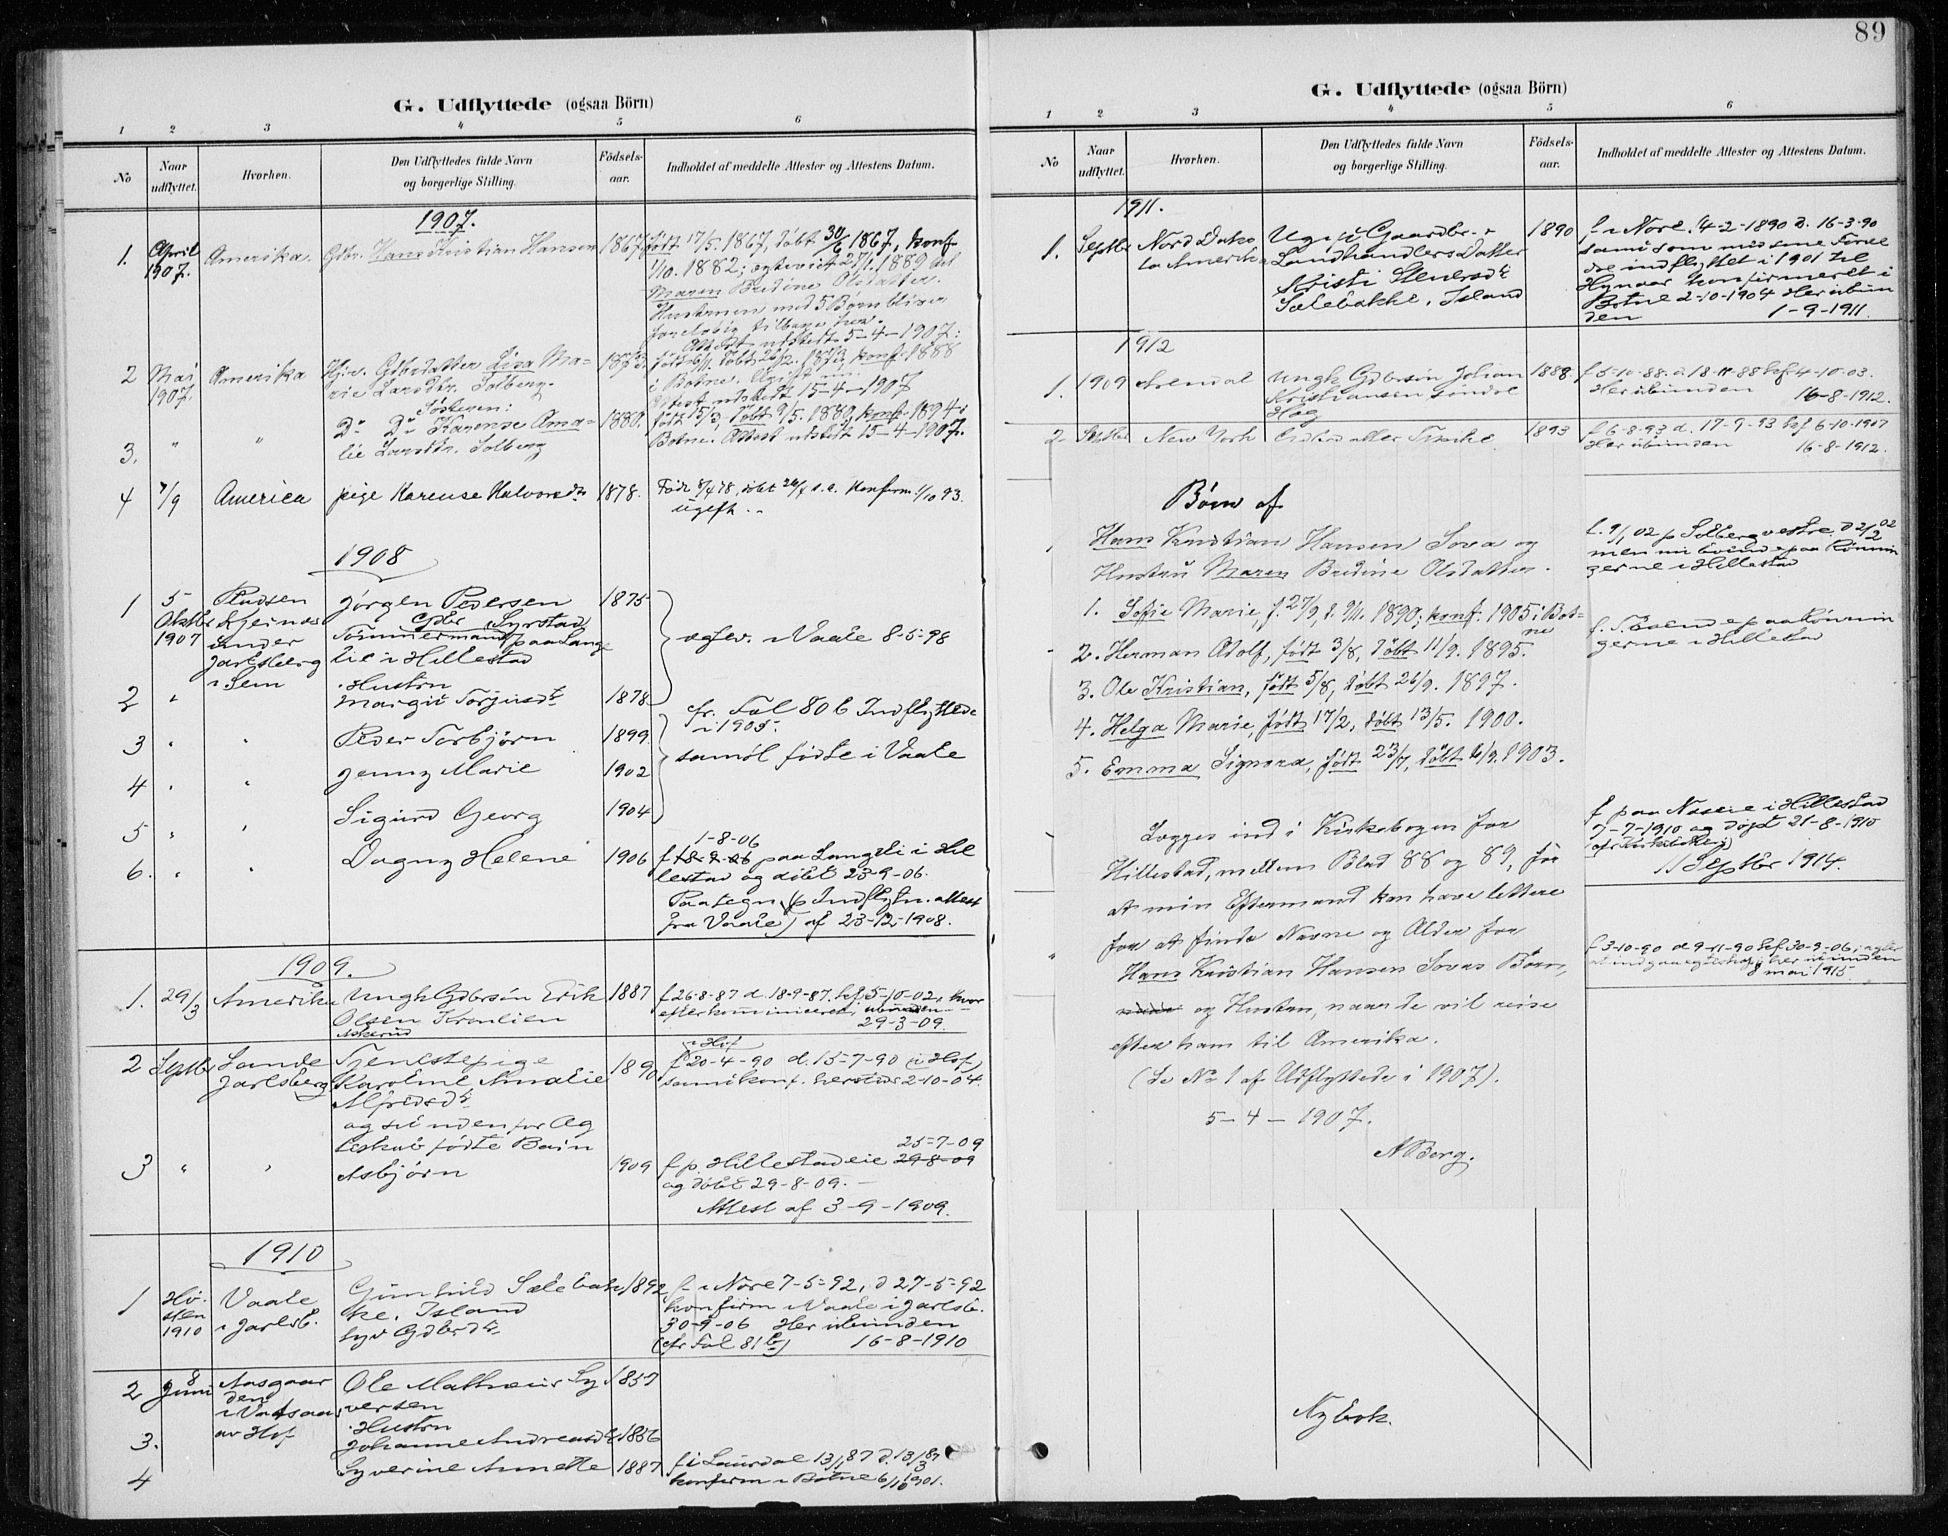 89
G. Udflyttede (ogsaa Börn)
1 2 3 4 5 6
No
Naar udflyttet.
Hvorhen.
Den Udflyttedes fulde Navn og borgerlige Stilling.
Födsels-aar.
Indholdet af meddelte Attester og Attestens Datum.
1907.
1. April 1907. Amerika. Gdbr. Hans Kristian Hansen 1867. født 17/5. 1867, døbt 30/6 1867, konf.
1/10. 1882; egteviet 27/1. 1889 til
Maren Bredine Olsdatter.
Hustruen med 5 Børn bliver
foreløbig tilbage her.
Attest udstedt 5-4-1907.
2 Mai 1907. Amerika Lisa Ma-
rie Larsdtr. Solberg. 1873. konf. 1888
i Botne. Ugift
Attest udstedt 15-4-1907
Søsteren:
3. " " Do Do Karense Ama-
lie Larsdtr. Solberg 1880. født 15/3, døbt 9/5. 1880, konf. 1894 i
Botne. Attest udstedt 15-4-1907.
4 7/9 America pige Karense Halvorsdtr 1878. Født 8/4 78, døbt s. a. Konfirm. 1/10 93.
ugift.
1908
1 5 Oktbr 1907
Kjernes
under
Jarlsberg
i Sem
Jørgen Pedersen 1875
Tømmermand paa Lange
lie i Hillestad
egtev. i Vaale 8-5-98
2 " Hustru
Margit Torjusdtr 1878
3 " " Peder Torbjørn 1899
4 " " Jenny Marie 1902
5 " " Sigurd Georg 1904
cfr. Fol 80 b Indflyttede
i 1905.
samtl fødte i Vaale
6. " " Dagny Helene 1906 1-8-06
f. paa Langeli i Hil
lestad og døbt 23-9-06.
Paategn. (p Indflytn. attest
fra Vaale) af 23-12-1908.
1909.
1. 29/3 Amerika Ungk Gdbrsøn Erik
Olsen Kronlien
Askerud 1887 f 26-8-87 d. 18-9-87. kf. 5-10-02, hvor
efter kommuniceret,
29-3-09.
2 Septbr Sande
Jarlsberg Tjenestepige
Karoline Amalie
Alfredsdtr 1890 i Hof
f 20-4-90 d. 15-7-90 (i Hof)
samt konf. hersteds 2-10-04.
og sit uden for Æg
teskab fødte Barn
3 " " Asbjørn 1909 25-7-09
f p. Hillestadeie 29-8-09
og døbt 29-8-09.
Attest af 3-9-1909.
1910
1 Hø-
sten
1910 Vaale
i Jarlsb. Gunhild Sælebak
ke, Island 1892 f i Nore 7-5-92, d 27-5-92
konfirm i Vaale i Jarlsb.
30-9-06 Her ubunden
(cfr Fol 81 b) 16-8-1910
2 8 Juni Aasgaar
den
i Vassaas
av Hof Ole Mathæus Sy
versen 1857
3. Hustru
Johanne Andreasdtr 1856
4 Syverine Annette 1887 f i Laurdal 13/1 87 d. 13/3 87
konfirm i Botne 6/10 1901.
G. Udflyttede (ogsaa Börn)
1 2 3 4 5 6
No
Naar udflyttet.
Hvorhen.
Den Udflyttedes fulde Navn og borgerlige Stilling.
Födsels-aar.
Indholdet af meddelte Attester og Attestens Datum.
1911.
1. Septbr Nord Dako
ta Amerika Ugift Gaardbr. +
Landhandlers Datter
Kristi Stenersdtr
Sælebakke, Island 1890 f i Nore 4-2-1890 d. 16-3-90
samt som med sine Forel
dre indflyttet i 1901 til
konfirmeret i
Botne 2-10-1904 Her ubun
den 1-9-1911.
1912
1. 1909 Arendal Ungk Gdbrsøn Johan
Kristiansen
Hag 1888. f 5-10-88. d. 18-11-88 kf 4-10-03.
Her ubunden
16-8-1912.
2 Septbr New York 1893 f 6-8-93 d. 17-9-93 kf 6-10-1907
Her ubunden 16-8-1912.
f. 9/1 02 p Solberg vestre. d 2/2 02
men nu boende paa Rønnin
gerne i Hillestad
Boende paa Rønnin
gerne i Hillestad
f paa i Hillestad
7-7-1910 og døpt 21-8-1910
11 Septbr 1914.
f 3-10-90 d 9-11-90 kf 30-9-06, agter
at indgaa egteskap, her ubunden
8 mai 1915.
Børn af
Hans Kristian Hansen Sova og
Hustru Maren Bredine Olsdatter.
1. Sofie Marie, f. 27/9, d. 9/11. 1890; konf. 1905 i Bot-
ne
2. Herman Adolf, født 3/8, døbt 11/9. 1895.
3. Ole Kristian, født 5/8, døbt 26/9. 1897.
4. Helga Marie, født 17/2, døbt 13/5. 1900.
5. Emma Signora, født 23/7, døbt 6/9. 1903.
Lægges ind i Kirkebogen for
Hillestad, mellem Blad 88 og 89, for
at min Eftermand kan have lettere
for at finde Navne og Alder for
Hans Kristian Hansen Sovas Børn,
og Hustru, naar de vil reise
efter ham til Amerika.
(Se No 1 af Udflyttede i 1907).
5-4-1907.
N Berg.
Ny bok.